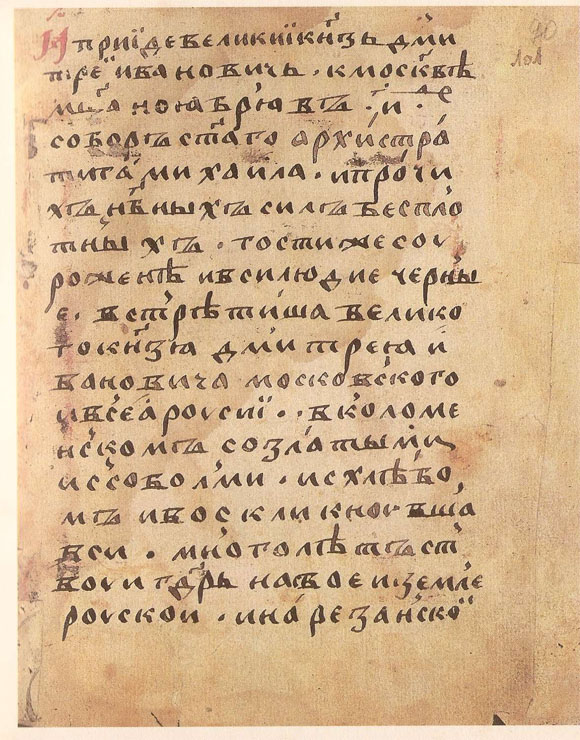 И прїиде великиї кн҃зь дми
треї ивановичь · к москвѣ
мс҃ца ноѧбрїѧ въ · и҃ · де
соборъ ст҃аго архистра
тига михаила · и прочи
хъ нб҃ныхъ силъ беспло
тныхъ · гостиже соу
роженѣ и вси людие черны
е · встрѣтиша велико
го кн҃зѧ дмитреѧ и
вановича московского
и всеа роусиї · в коломе
нскомъ со златыми
и с соболми · и с хлѣбо
мъ и воскликноувша
вси · много лѣтъ ст
вои гд҃рь на свое и земле
роускои · и на резанско
101